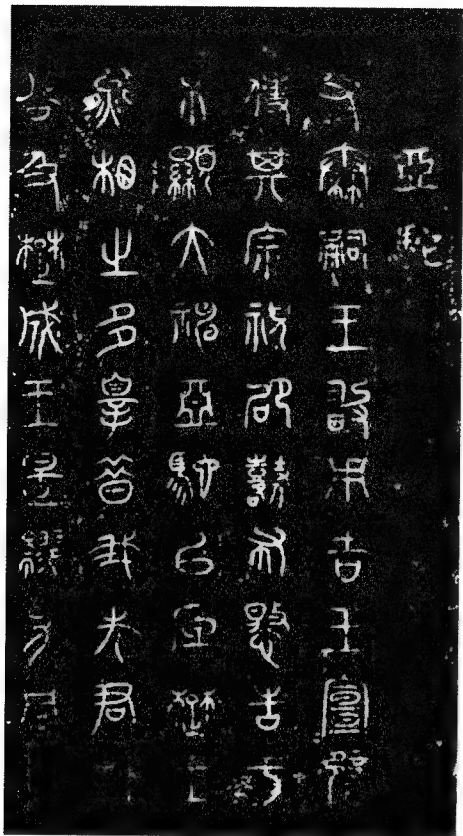 亞駝
又秦嗣王敢用吉玉宣璧
使其宗祝邵鼛布愍告于
不顯大神亞駝以底楚王
熊相之多辠昔我先君
公及楚成王是繆力同